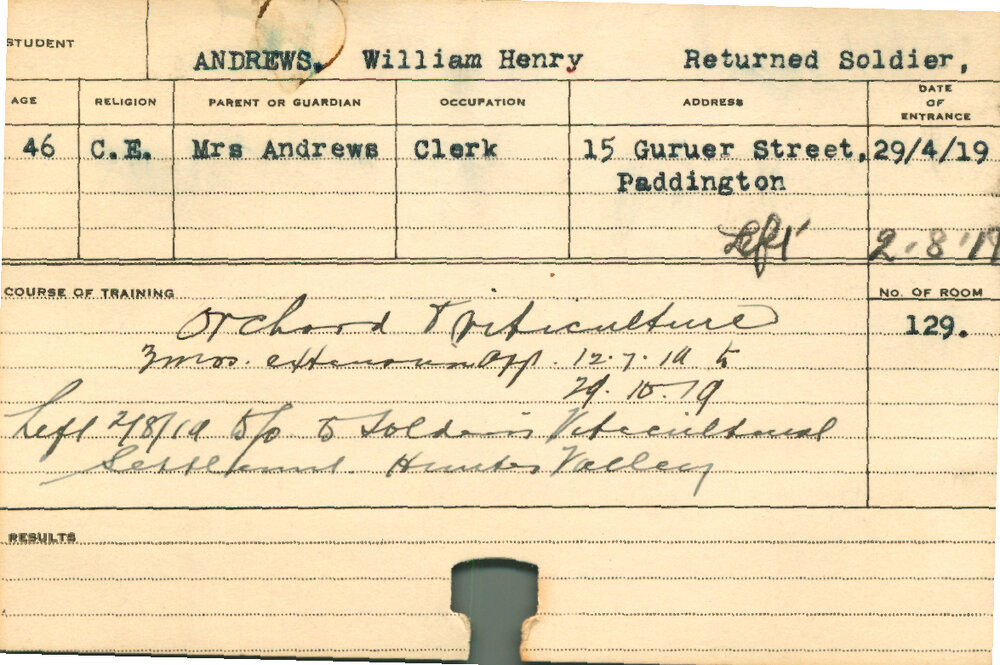 STUDENT
ANDREWS. William Henry Returned Soldier,
AGE RELIGION PARENT OR GUARDIAN OCCUPATION ADDRESS DATE OF ENTRANCE
46 C.E. Mrs Andrews Clerk 15 Guruer Street, 29/4/19
Paddington
Left 2.8.19
COURSE OF TRAINING No. OF ROOM
Orchard & Viticulture 129.
3 mos. extension app. 12.7.19 to
29.10.19
Left 2/8/19 to go to Soldiers Viticultural
Settlement. Hunter Valley
RESULTS